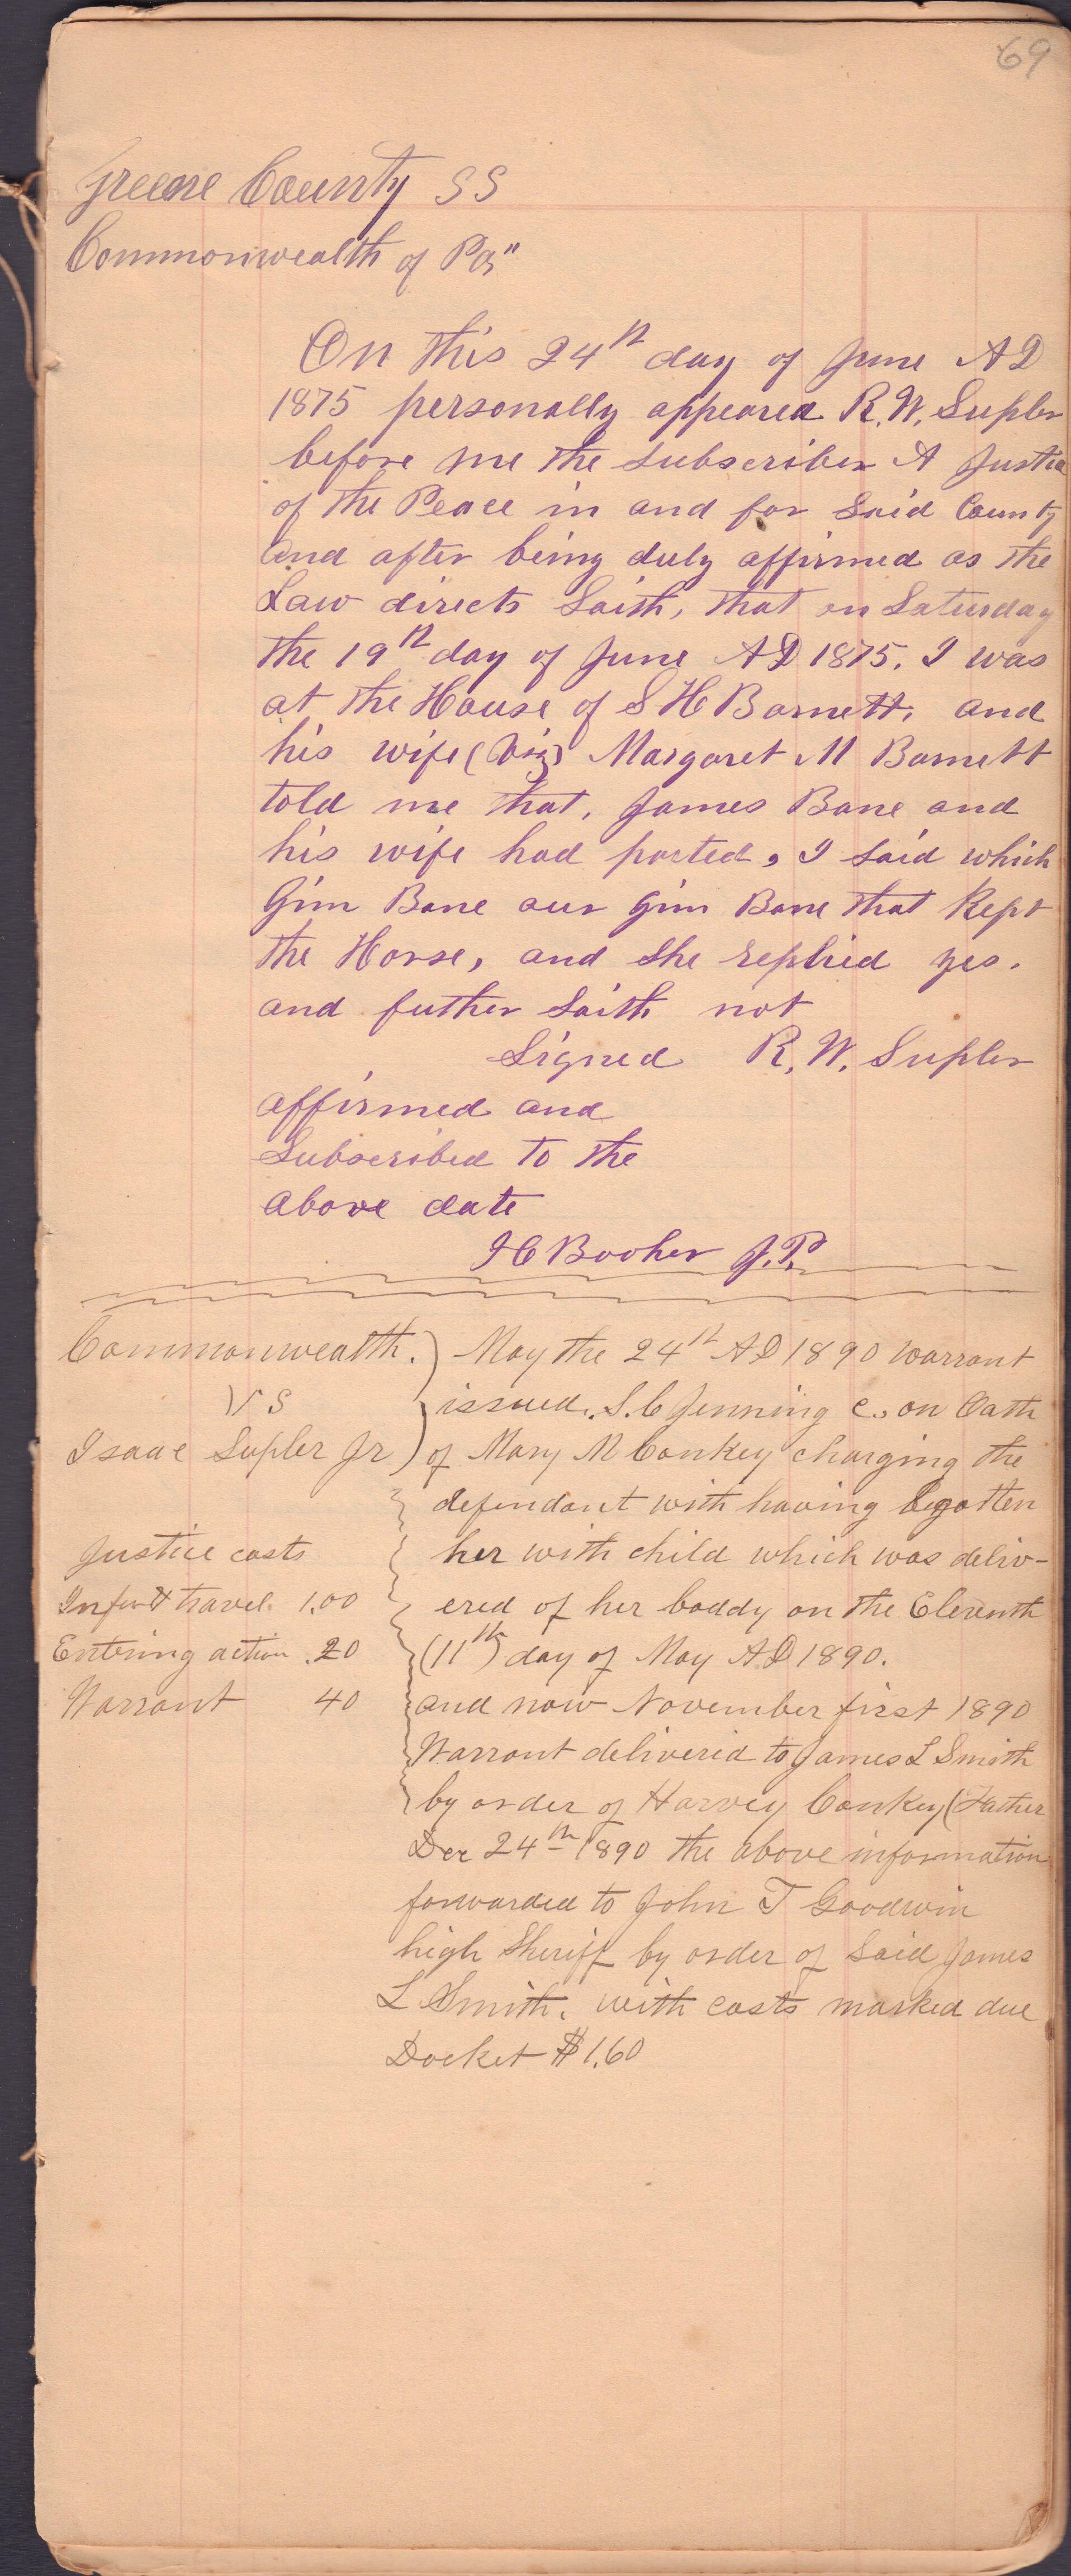 69
Greene County SS
Commonwealth of Pa"
On this 24th day of June AD
1875 personally appeared R. W. Supler
before me the subscriber A Justice
of the Peace in and for Said County
and after being duly affirmed as the
Law directs Saith, that on Saturday
the 19th day of June AD 1875. I was
at the House of S H Barnett, and
his wife (Viz) Margaret M Barnett
told me that, James Bane and
his wife had parted, I said which
Gim Bane our Gim Bane that Kept
the Horse, and she replied yes.
and futher Saith not
Signed R. W. Supler
affirmed and
Subscribed to the
above date
H C Booher J. P.
Commonwealth.
VS
Isaac Supler Jr
Justice costs
Infor & travel 1.00
Entering action .20
Warrant 40
May the 24th AD 1890 warrant
issued. S. C Jenning c. on Oath
of Mary M Conkey charging the
defendant with having begotten
her with child which was deliv-
ered of her boddy on the Eleventh
(11th) day of May AD 1890.
and now November first 1890
Warrant delivered to James L Smith
by order of Harvey Conkey (Father
Dec 24th 1890 the above information
forwarded to John T Goodwin
high Sheriff by order of Said James
L Smith. with costs marked due
Docket $1.60